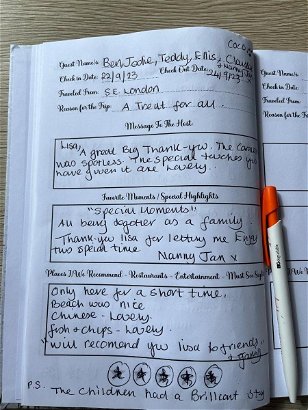 Coco &
Guest Name/s: Ben, Jodie, Teddy, Ellis, Charlie
& Nanny Jan x
Check in Date: 22/9/23 Check Out Date: 24/9/23
Traveled From: S.E. London
Reason for the Trip: A Treat for all.
Message To The Host
Lisa,
A great Big Thank-you. The Caravan
was spotless. The special touches you
have given it are lovely.
Favorite Moments / Special Highlights
"Special Moments"
All being together as a family.
Thank-you lisa for letting me Enjoy
this special time
Nanny Jan x
Places I/We Recommend - Restaurants - Entertainment - Must See Sights
Only here for a short time,
Beach was nice
Chinese - lovely.
fish & chips - lovely.
"will recomend you lisa to friends"
& family
P.S. The Children had a Brilliant stay
Guest Name/s
Check in Date
Traveled From
Reason for the